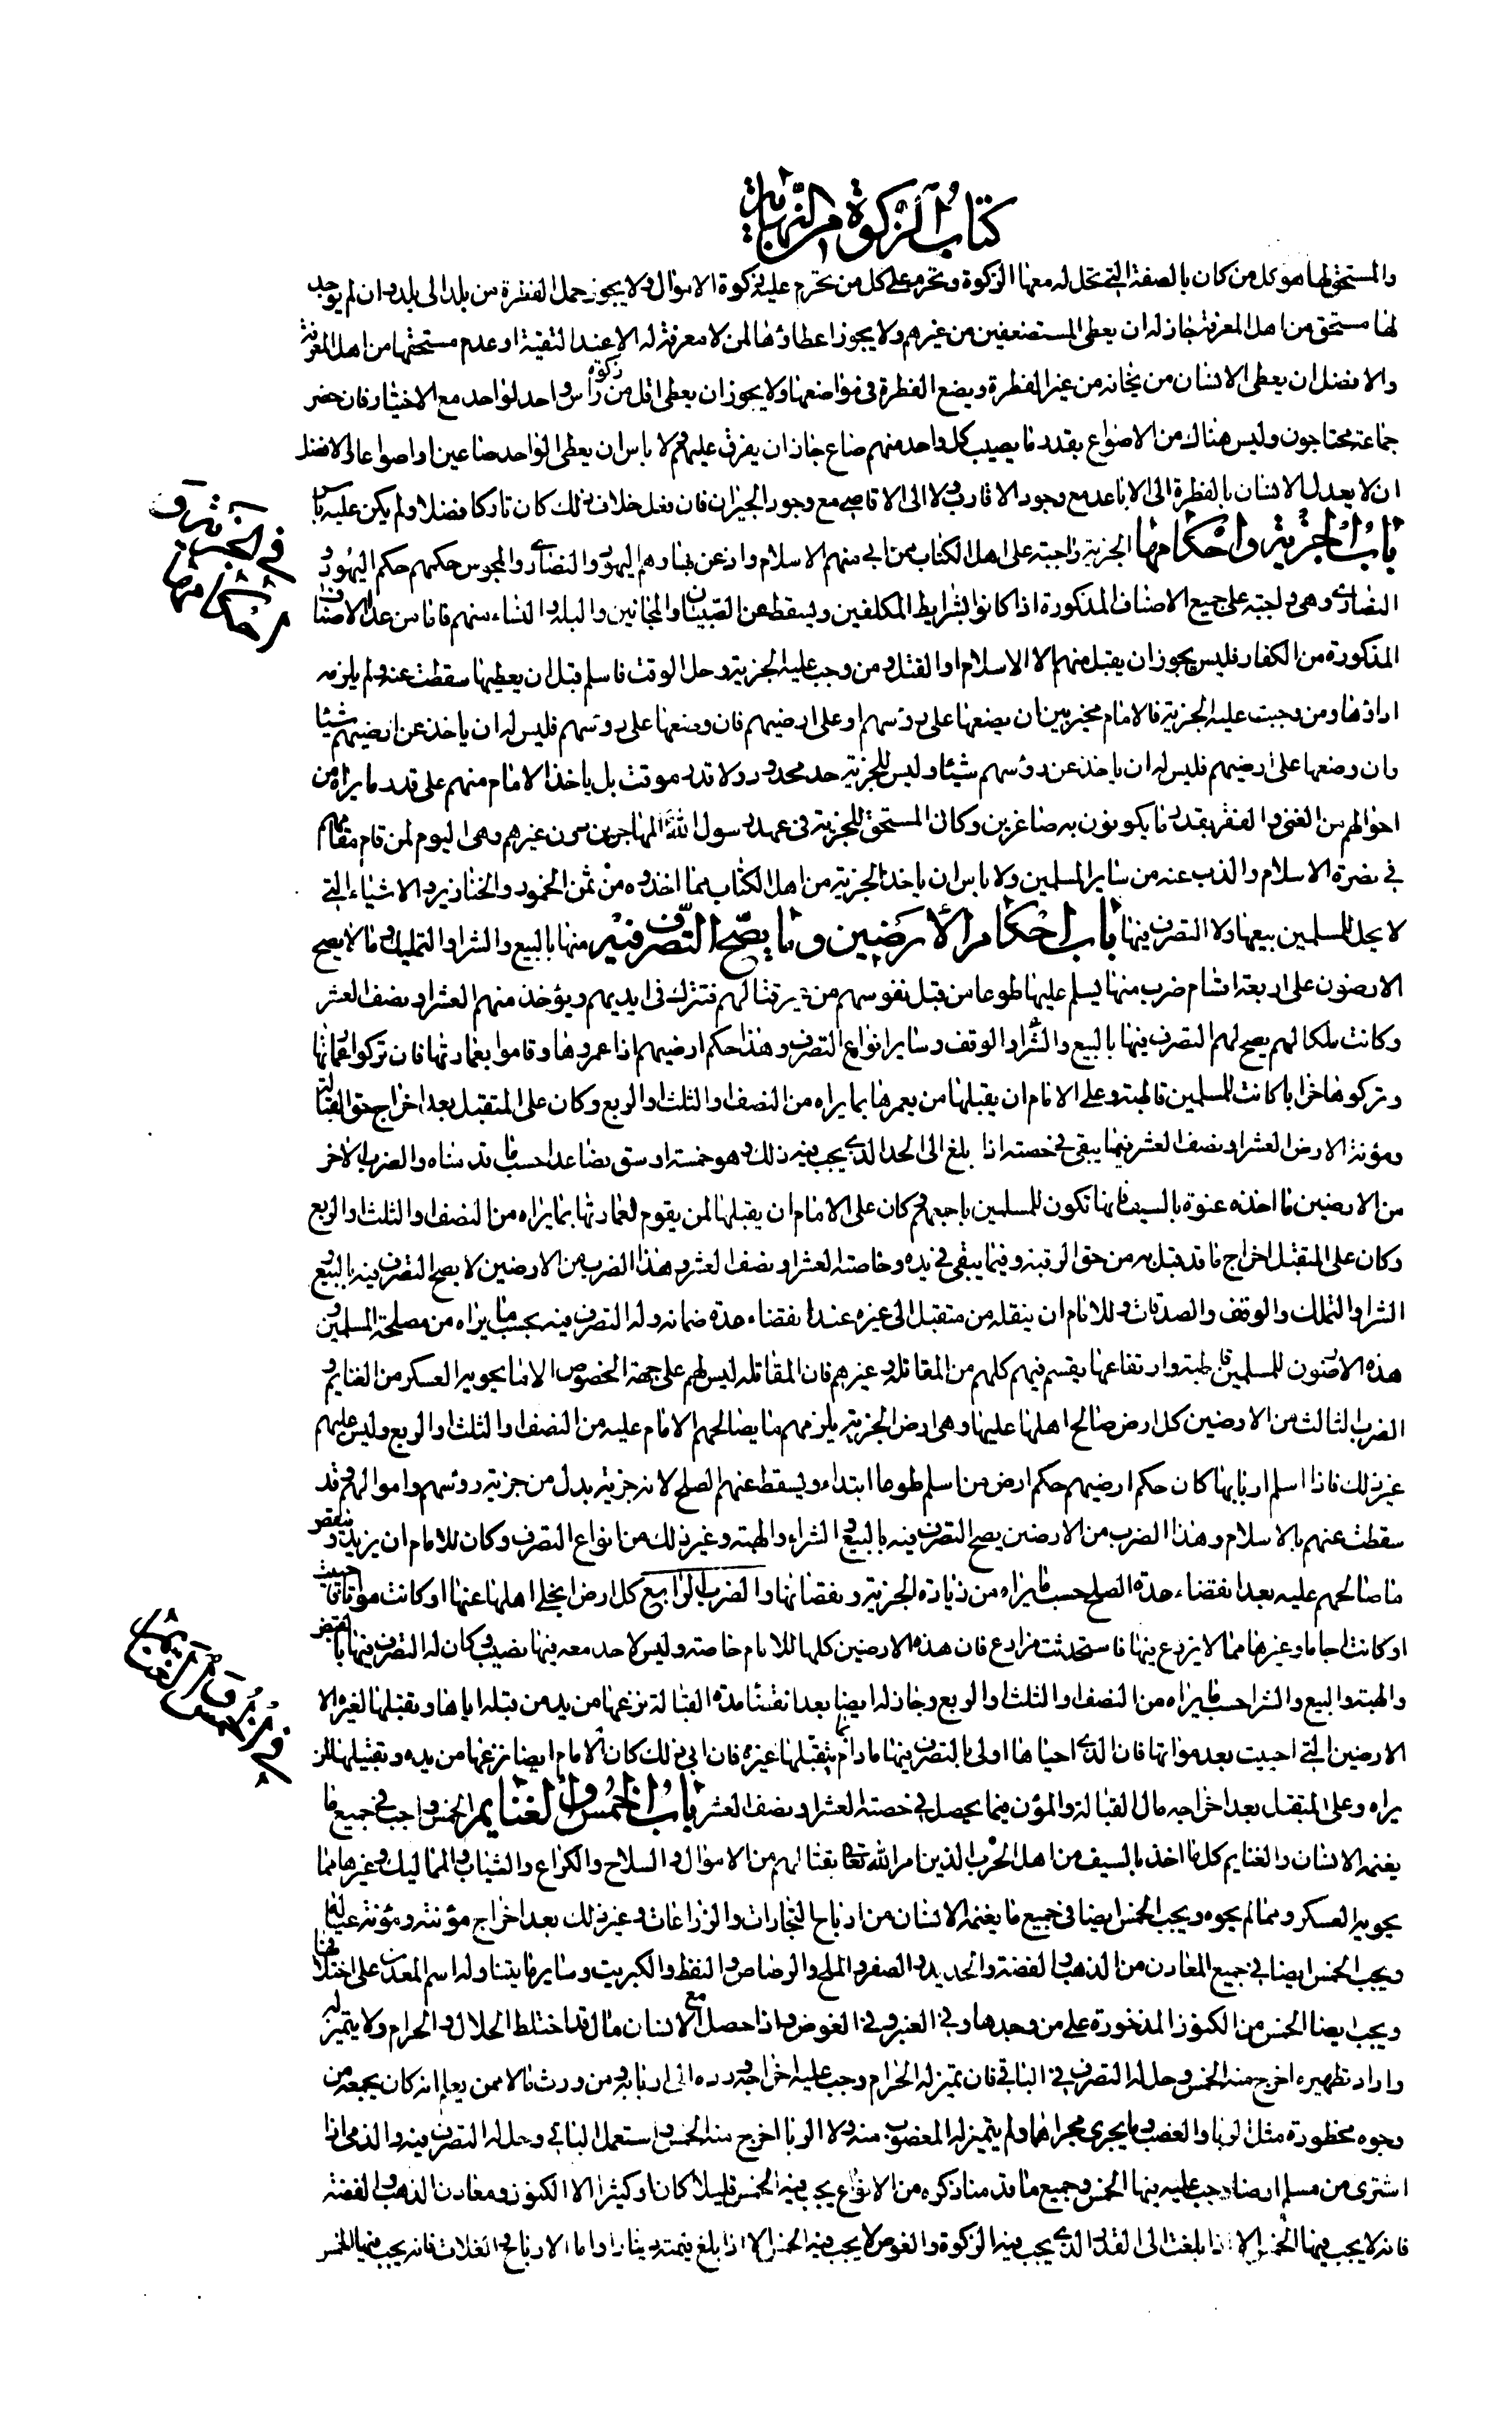 كتاب الزكوة من النهاية
والمستحق لها هو كل من كان بالصفة التي تحل له معها الزكوة وتحرم على كل من تحرم عليه زكوة الاموال ولا يجوز حمل الفطرة من بلد الى بلد وان لم يوجد
لها مستحق من اهل المعرفة جاز له ان يعطى المستضعفين من غيرهم ولا يجوز اعطاؤها لمن لا معرفة له الا عند التقية او عدم مستحقها من اهل المعرفة
والافضل ان يعطى الانسان من يخافه من غير الفطرة ويضع الفطرة في مواضعها ولا يجوز ان يعطى اقل من زكوة راس واحد لواحد مع الاختيار فان حضر
جماعة محتاجون وليس هناك من الاصواع بقدر ما يصيب كل واحد منهم صاع جاز ان يفرق عليهم ولا باس ان يعطى الواحد صاعين او اصواعا والافضل
ان لا يعدل الانسان بالفطرة الى الاباعد مع وجود الاقارب ولا الى الاقاصي مع وجود الجيران فان فعل خلاف ذلك كان تاركا فضلا ولم يكن عليه باس
باب الجزية واحكامها الجزية واجبة على اهل الكتاب ممن ابى منهم الاسلام واذعن بها وهم اليهود والنصارى والمجوس حكمهم حكم اليهود و
النصارى وهي واجبة على جميع الاصناف المذكورة اذا كانوا بشرايط المكلفين ويسقط عن الصبيان والمجانين والبله والنساء منهم فاما من عدا الاصناف
المذكورة من الكفار فليس يجوز ان يقبل منهم الا الاسلام او القتل ومن وجب عليه الجزية وحل الوقت فاسلم قبل ان يعطيها سقطت عنه ولم يلزمه
اداؤها ومن وجبت عليه الجزية فالامام مخير بين ان يضعها على رؤسهم او على ارضيهم فان وضعها على رؤسهم فليس له ان ياخذ عن ارضيهم شيئا
وان وضعها على ارضيهم فليس له ان ياخذ عن رؤسهم شيئا وليس للجزية حد محدود ولا قدر موقت بل ياخذ الامام منهم على قدر ما يراه من
احوالهم من الغنى والفقر بقدر ما يكونون به صاغرين وكان المستحق للجزية في عهد رسول الله المهاجرين دون غيرهم وهى اليوم لمن قام مقامهم
في نصرة الاسلام والذب عنه من ساير المسلمين ولا باس ان ياخذ الجزية من اهل الكتاب مما اخذوه من ثمن الخمور والخنازير والاشياء التي
لا يحل للمسلمين بيعها ولا التصرف فيها باب احكام الارضين وما يصح التصرف فيه منها بالبيع والشرا والتمليك وما لا يصح
الارضون على اربعة اقسام ضرب منها يسلم عليها طوعا من قبل نفوسهم من غير قتال فتترك في ايديهم ويؤخذ منهم العشر او نصف العشر
وكانت ملكا لهم يصح لهم التصرف فيها بالبيع والشراء والوقف وساير انواع التصرف وهذا حكم ارضيهم اذا عمروها وقاموا بعمارتها فان تركوا عمارتها
وتركوها خرابا كانت للمسلمين قاطبة وعلى الامام ان يقبلها ممن يعمرها بما يراه من النصف او الثلث او الربع وكان على المتقبل بعد اخراج حق القبالة
ومؤنة الارض العشر او نصف العشر فيما يبقى في خصته اذا بلغ الى الحد الذي يجب فيه ذلك وهو خمسة اوسق فصاعدا حسب ما قدمناه والضرب الاخر
من الارضين ما اخذ عنوة بالسيف فانها تكون للمسلمين باجمعهم وكان على الامام ان يقبلها لمن يقوم بعمارتها بما يراه من النصف او الثلث او الربع
وكان على المتقبل اخراج ما قد قبل به من حق الرقبة وفيما يبقى في يده وخاصته العشر او نصف العشر وهذا الضرب من الارضين لا يصح التصرف فيه بالبيع و
الشرا والتملك والوقف والصدقات وللامام ان ينقله من متقبل الى غيره عند انقضاء مدة ضمانه وله التصرف فيه بحسب ما يراه من مصلحة المسلمين و
هذه الارضون للمسلمين قاطبة وارتفاعها يقسم فيهم كلهم من المقاتلة وغيرهم فان المقاتلة ليس لهم على جهة الخصوص الا ما يحويه العسكر من الغنايم و
الضرب الثالث من الارضين كل ارض صالح اهلها عليها وهى ارض الجزية يلزمهم ما يصالحهم الامام عليه من النصف او الثلث او الربع وليس عليهم
غير ذلك فاذا اسلم اربابها كان حكم ارضيهم حكم ارض من اسلم طوعا ابتداء ويسقط عنهم الصلح لانه جزية بدل من جزية رؤسهم واموالهم وقد
سقطت عنهم بالاسلام وهذا الضرب من الارضين يصح التصرف فيه بالبيع والشراء والهبة وغير ذلك من انواع التصرف وكان للامام ان يزيد وينقص
ما صالحهم عليه بعد انقضاء مدة الصلح حسب ما يراه من زيادة الجزية ونقصانها والضرب الرابع كل ارض انجلى اهلها عنها او كانت مواتا فاحييت
او كانت اجاما وغيرها مما لا يزرع فيها فاستحدثت مزارع فان هذه الارضين كلها للامام خاصة وليس لاحد معه فيها نصيب وكان له التصرف فيها بالقبض
والهبة والبيع والشرا حسب ما يراه من النصف او الثلث او الربع وجاز له ايضا بعد انقضاء مدة القبالة نزعها من يد من قبله اياها وتقبيلها لغيره الا
الارضين التي احييت بعد مواتها فان الذي احياها اولى بالتصرف فيها ما دام يتقبلها بما يتقبلها غيره فان ابى ذلك كان للامام ايضا نزعها من يده وتقبيلها لمن
يراه وعلى المتقبل بعد اخراجه مال القبالة والمؤن فيما يحصل في خصته العشر او نصف العشر باب الخمس والغنايم الخمس واجب في جميع ما
يغنمه الانسان والغنايم كل ما اخذ بالسيف من اهل الحرب الذين امر الله تعالى بقتالهم من الاموال والسلاح والكراع والثياب والمماليك وغيرها مما
يحويه العسكر ومما لم يحوه ويجب الخمس ايضا في جميع ما يغنمه الانسان من ارباح التجارات والزراعات وغير ذلك بعد اخراج مؤنته ومؤنة عياله
ويجب الخمس ايضا في جميع المعادن من الذهب والفضة والحديد والصفر والملح والرصاص والنفط والكبريت وساير ما يتناوله اسم المعدن على اختلافها
ويجب ايضا الخمس من الكنوز المذخورة على من وجدها وفي العنبر وفي الغوص واذا حصل مع الانسان مال قد اختلط الحلال والحرام ولا يتميز له
واراد تطهيره اخرج منه الخمس وحل له التصرف في الباقي فان تميز له الحرام وجب عليه اخراجه ورده الى اربابه ومن ورث مالا ممن يعلم انه كان يجمعه من
وجوه محظورة مثل الربا والغصب وما يجرى مجراهما ولم يتميز له المغصوب منه ولا الربا اخرج منه الخمس واستعمل الباقي وحل له التصرف فيه والذمى اذا
اشترى من مسلم ارضا وجب عليه فيها الخمس وجميع ما قدمنا ذكره من الانواع يجب فيه الخمس قليلا كان او كثيرا الا الكنوز ومعادن الذهب والفضة
فانه لا يجب فيها الخمس الا اذا بلغت الى القدر الذي يجب فيه الزكوة والغوص لا يجب فيه الخمس الا اذا بلغ قيمته دينارا واما الارباح والغلات فانه يجب فيها الخمس
في الجزية و
احكامها
في
الخمس والغنايم